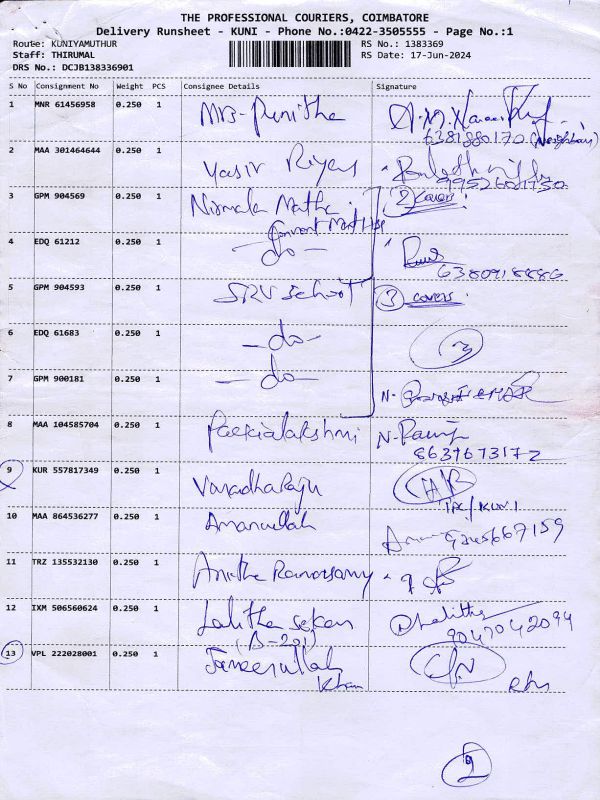 THE PROFESSIONAL COURIERS, COIMBATORE
Delivery Runsheet - KUNI - Phone No.:0422-3505555 - Page No.:1
Route: KUNIYAMUTHUR RS No.: 1383369
Staff: THIRUMAL RS Date: 17-Jun-2024
DRS No.: DCJB138336901
S No Consignment No Weight PCS Consignee Details Signature
1 MNR 61456958 0.250 1 Mrs. Punitha
6381880170 (Neighbour)
2 MAA 301464644 0.250 1 Yasir Riyas
9952601750
3 GPM 904569 0.250 1 Nirmala Matha 2 covers
Convent
4 EDQ 61212 0.250 1 -do-
6380918886
5 GPM 904593 0.250 1 SRV School 3 covers
6 EDQ 61683 0.250 1 -do- 3
7 GPM 900181 0.250 1 -do-
8 MAA 104585704 0.250 1 Packialakshmi N-
8637673172
9 KUR 557817349 0.250 1 Varadharaju
TPC/KUNI
10 MAA 864536277 0.250 1 Amanullah
11 TRZ 135532130 0.250 1 Anitha
12 IXM 506560624 0.250 1 Lalitha Sekar Lalitha
(B-201) 9047042094
13 VPL 222028001 0.250 1 Jameerullah
Khan